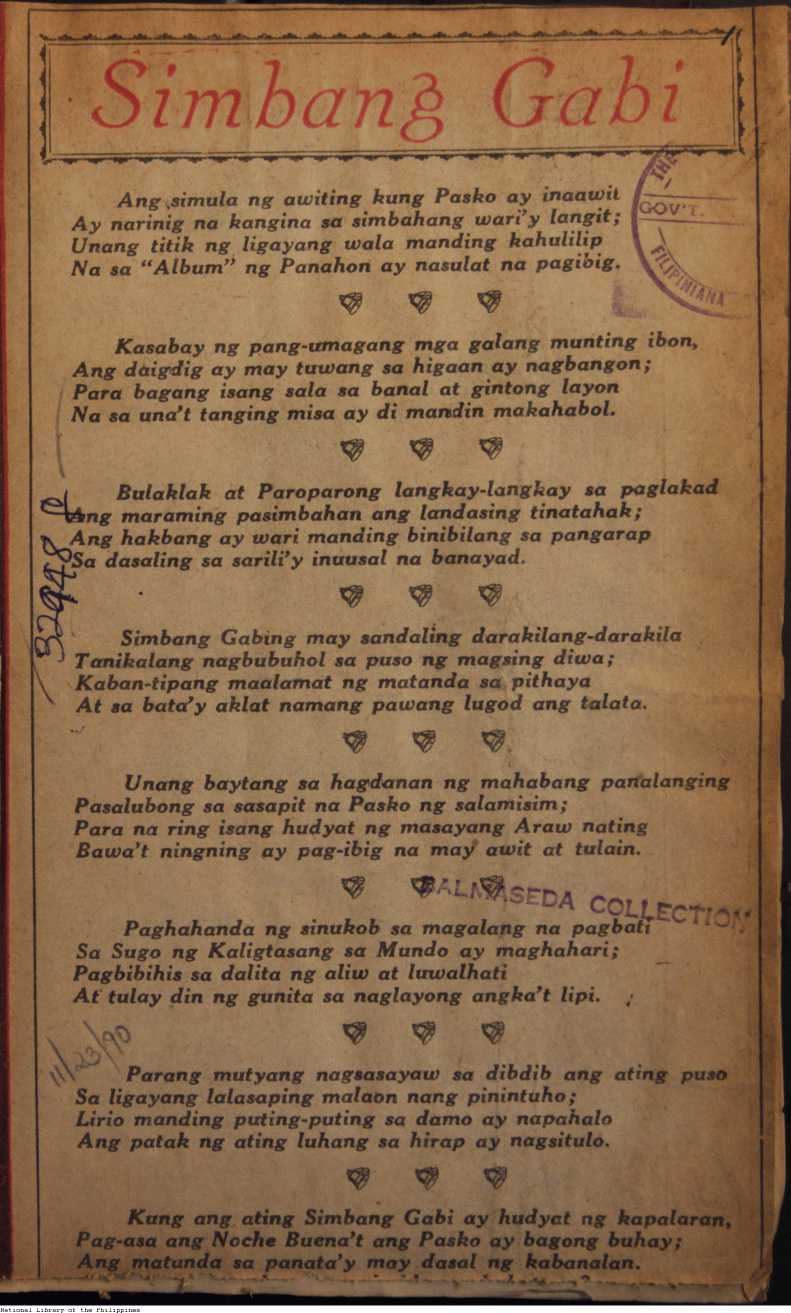 Simbang Gabi
Ang simula ng awiting kung Pasko ay inaawit
Ay narinig na kangina sa simbahang wari'y langit;
Unang titik ng ligayang wala manding kahulilip
Na sa “Album” ng Panahon ay nasulat na pagibig.
THE
GOV'T.
FILIPINIANA
Kasabay ng pang-umagang mga galang munting ibon,
Ang daigdig ay may tuwang sa higaan ay nagbangon;
Para bagang isang sala sa banal at gintong layon
Na sa una't tanging misa ay di mandin makahabol.
Bulaklak at Paroparong langkay-langkay sa paglakad
Ang maraming pasimbahan ang landasing tinatahak;
Ang hakbang ay wari manding binibilang sa pangarap
Sa dasaling sa sarili'y inuusal na banayad.
32948
Simbang Gabing may sandaling darakilang-darakila
Tanikalang nagbubuhol sa puso ng magsing diwa;
Kaban-tipang maalamat ng matanda sa pithaya
At sa bata'y aklat namang pawang lugod ang talata.
Unang baytang sa hagdanan ng mahabang panalanging
Pasalubong sa sasapit na Pasko ng salamisim;
Para na ring isang hudyat ng masayang Araw nating
Bawa't ningning ay pag-ibig na may awit at tulain.
BALMASEDA COLLECTION
Paghahanda ng sinukob sa magalang na pagbati
Sa Sugo ng Kaligtasang sa Mundo ay maghahari;
Pagbibihis sa dalita ng aliw at luwalhati
At tulay din ng gunita sa naglayong angka't lipi.
11/23/90
Parang mutyang nagsasayaw sa dibdib ang ating puso
Sa ligayang lalasaping malaon nang pinintuho;
Lirio manding puting-puting sa damo ay napahalo
Ang patak ng ating luhang sa hirap ay nagsitulo.
Kung ang ating Simbang Gabi ay hudyat ng kapalaran,
Pag-asa ang Noche Buena't ang Pasko ay bagong buhay;
Ang matunda sa panata'y may dasal ng kabanalan.
National Library of the Philippines